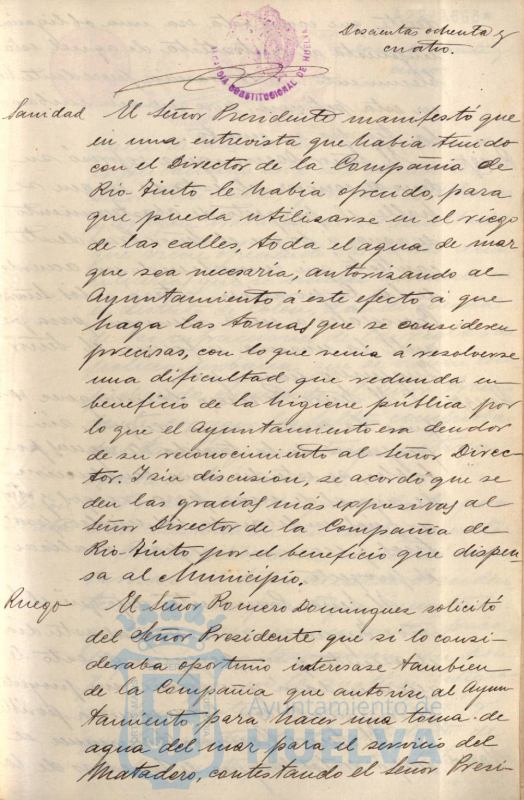 Doscientas ochenta y
cuatro.
ALCALDIA CONSTITUCIONAL DE HUELVA
Sanidad El Señor Presidente manifestó que
en una entrevista que habia tenido
con el Director de la Compañia de
Rio-Tinto le habia ofrecido, para
que pueda utilisarse en el riego
de las calles, toda el agua de mar
que sea necesaria, autorizando al
Ayuntamiento á este efecto á que
haga las tomas que se consideren
precisas, con lo que venia á resolverse
una dificultad que redunda en
beneficio de la higiene pública por
lo que el Ayuntamiento era deudor
de su reconocimiento al Señor Direc-
tor. I sin discusion, se acordó que se
den las gracias más expresivas al
Señor Director de la Compañia de
Rio-Tinto por el beneficio que dispen-
sa al Municipio.
Ruego El Señor Romero Dominguez solicitó
del Señor Presidente que si lo consi-
deraba oportuno interesase tambien
de la Compañia que autorise al Ayun-
tamiento para hacer una toma de
agua del mar para el servicio del
Matadero, contestando el Señor Presi-
Ayuntamiento de
HUELVA